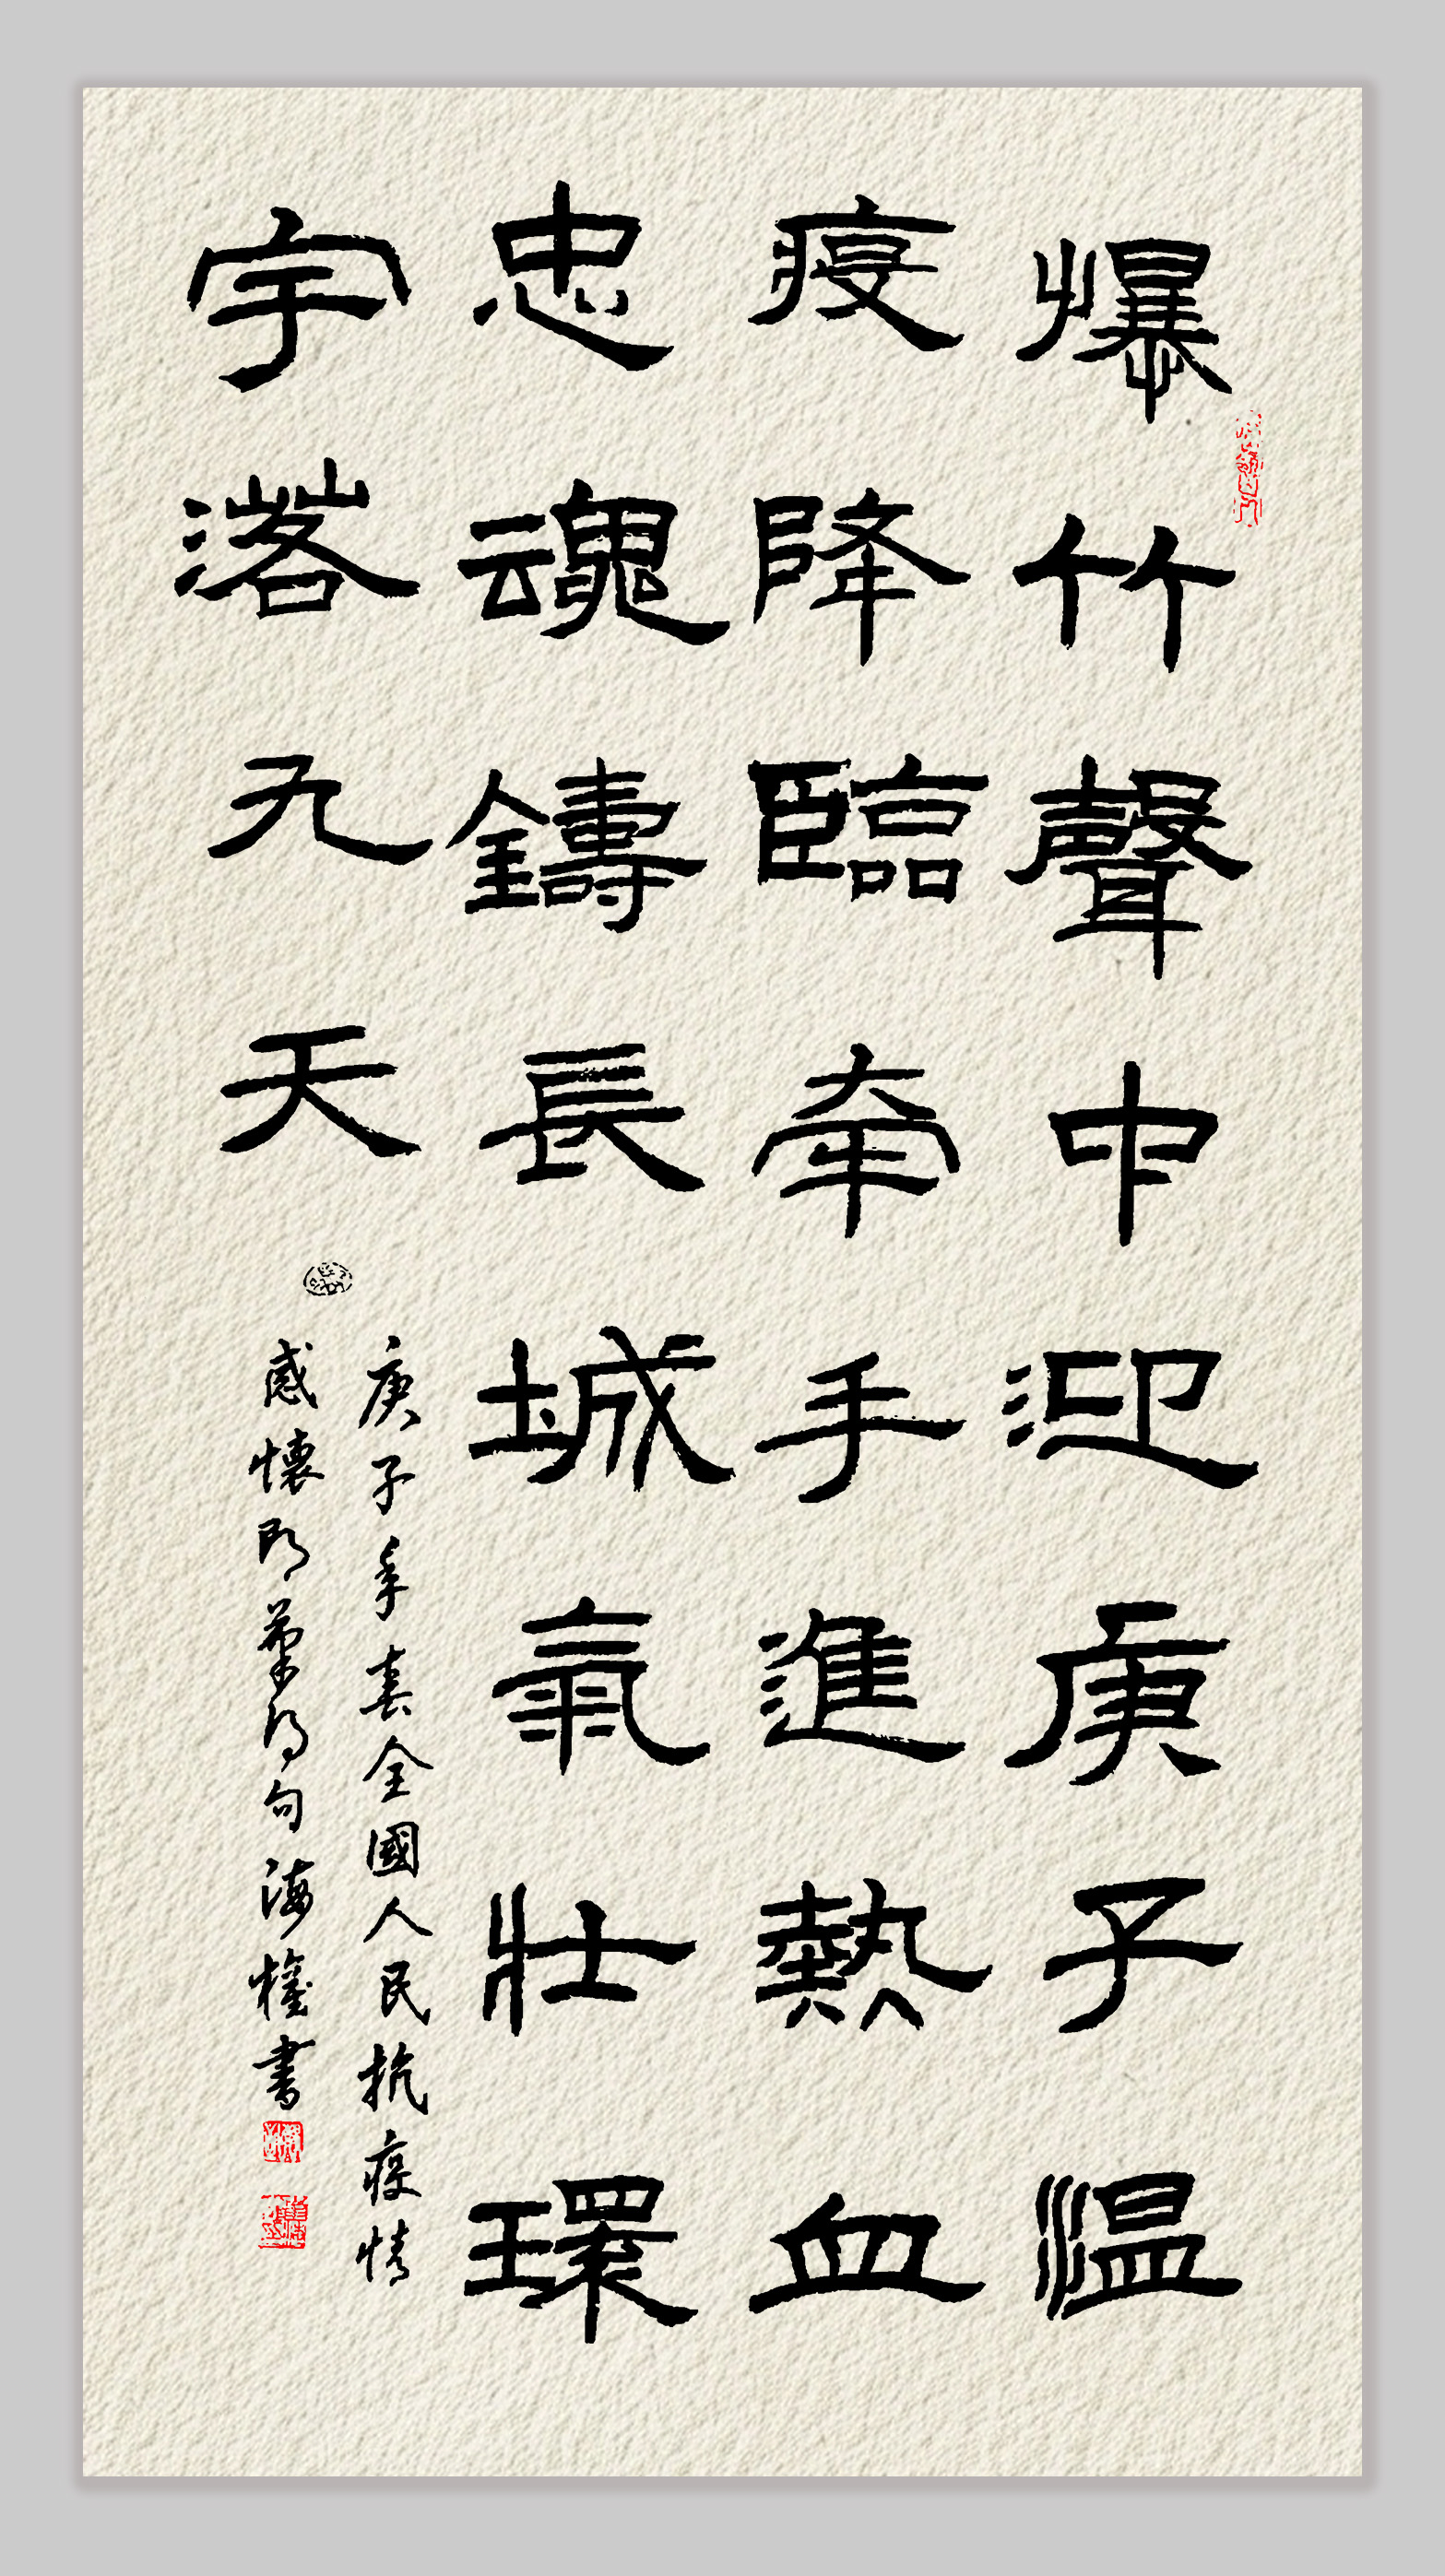 爆竹聲中迎庚子温
疫降臨牽手進熱血
忠魂鑄長城氣壯環
宇落九天
庚子年春全國人民抗疫情
感懷即筆得句海權書